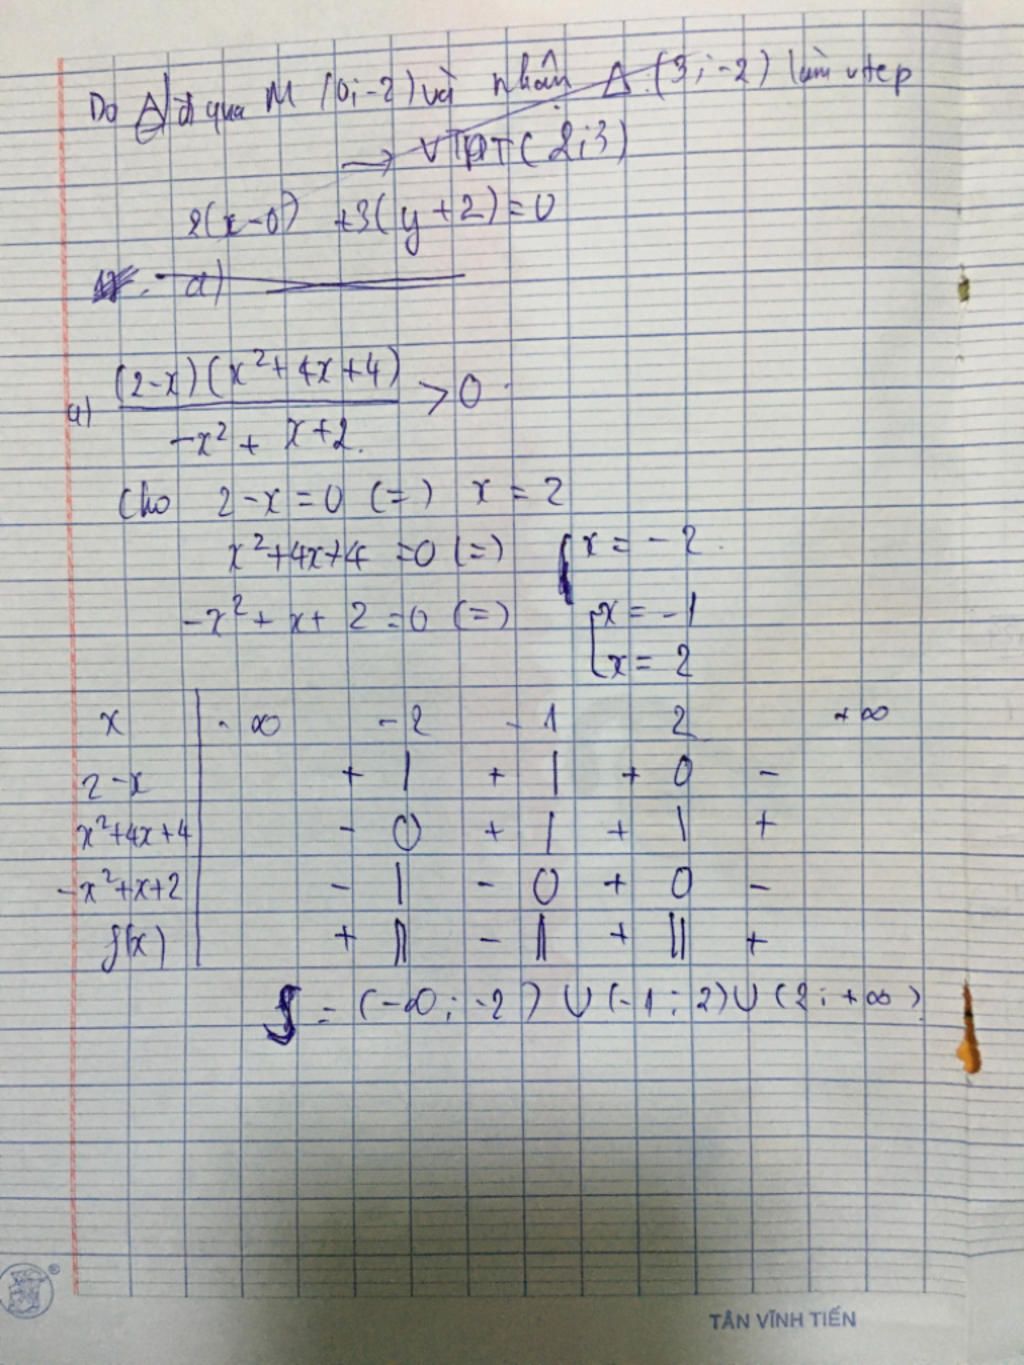 Do Δ đi qua M (0;-2) và nhân Δ (3;-2) làm vtcp
→ VTPT (2;3)
2(x-0) +3(y+2)=0
a)
a) (2-x)(x²+4x+4) / -x²+x+2 > 0
Cho 2-x=0 (=) x=2
x²+4x+4=0 (=) [x=-2
-x²+x+2=0 (=) [x=-1
x=2
x -∞ -2 -1 2 +∞
2-x + | + | + 0 -
x²+4x+4 - 0 + | + | +
-x²+x+2 - | - 0 + 0 -
f(x) + || - || + || +
S = (-∞;-2) ∪ (-1;2) ∪ (2;+∞)
®
TÂN VĨNH TIẾN